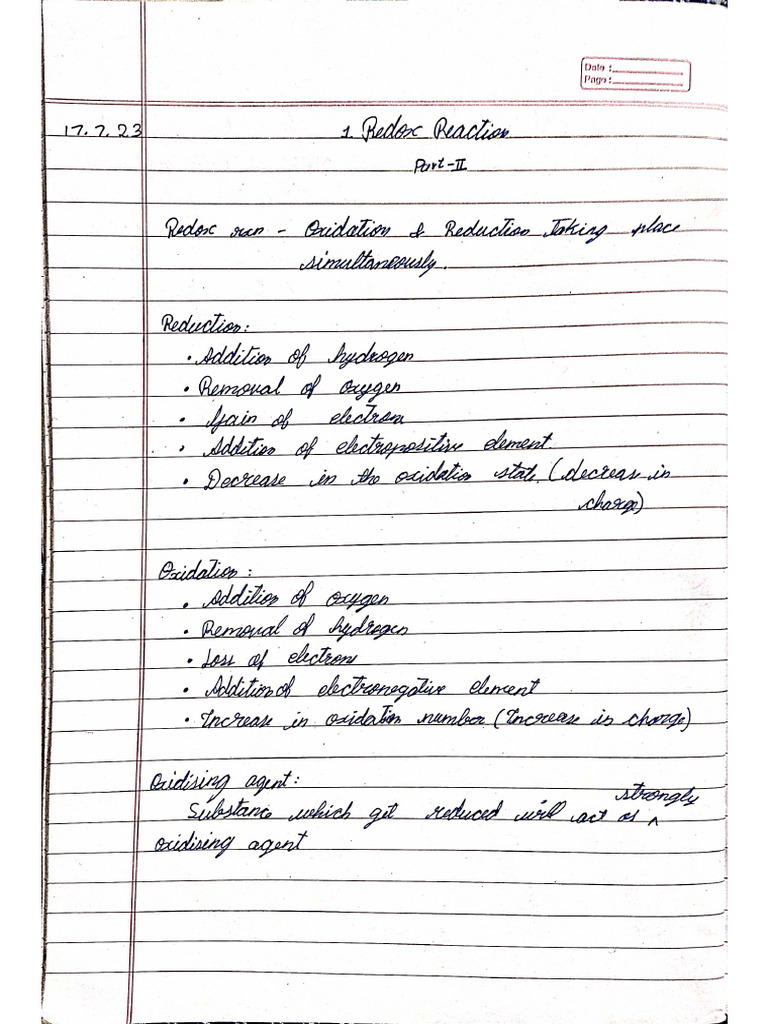 Date :
Page :
17.7.23 1. Redox Reaction
Part-II
Redox rxn - Oxidation & Reduction Taking place
simultaneously.
Reduction:
• Addition of hydrogen
• Removal of oxygen
• Gain of electron
• Addition of electropositive element.
• Decrease in the oxidation state (decrease in
charge)
Oxidation :
• Addition of oxygen
• Removal of hydrogen
• Loss of electrons
• Addition of electronegative element
• Increase in oxidation number (Increase in charge)
Oxidising agent:
strongly
Substance which get reduced will act as ^
oxidising agent